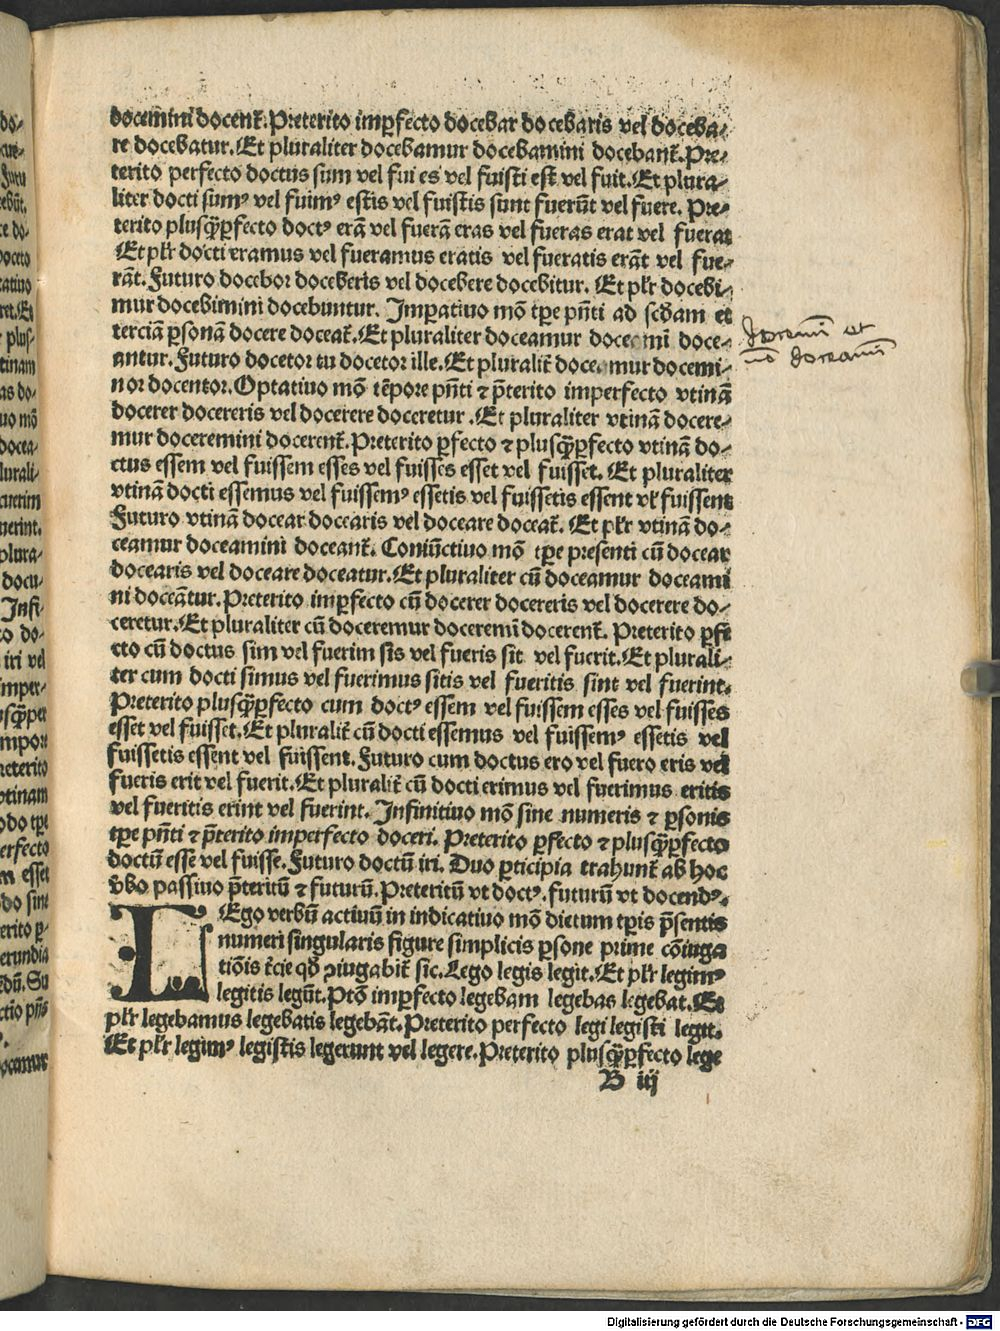 docemini docent̄. Preterito imꝑfecto docebar docebaris vel doceba⸗
re docebatur. Et pluraliter docebamur docebamini docebant̄. Pre⸗
terito perfecto doctus sum vel fui es vel fuisti est vel fuit. Et plura⸗
liter docti sumꝰ vel fuimꝰ estis vel fuistis sunt fuerūt vel fuere. Pre⸗
terito plusq̄ꝑfecto doctꝰ erā vel fuerā eras vel fueras erat vel fuerat
Et plr̄ docti eramus vel fueramus eratis vel fueratis erāt vel fue⸗
rāt. Futuro docebor doceberis vel docebere docebitur. Et plr̄ docebi⸗
mur docebimini docebuntur. Imꝑatiuo mō tꝑe pn̄ti ad scd̄am et
terciā ꝑsonā docere doceat̄. Et pluraliter doceamur doce mi doce⸗
antur. Futuro docetor tu docetor ille. Et pluralit̄ doce mur docemi⸗
nor docentor. Optatiuo mō tēpore pn̄ti ⁊ p̄terito imperfecto vtinā
docerer docereris vel docerere doceretur. Et pluraliter vtinā docere⸗
mur doceremini docerent̄. Preterito ꝑfecto ⁊ plusq̄ꝑfecto vtinā do⸗
ctus essem vel fuissem esses vel fuisses esset vel fuisset. Et pluraliter
vtinā docti essemus vel fuissemꝰ essetis vel fuissetis essent vl̄ fuissent
Futuro vtinā docear docearis vel doceare doceat̄. Et plr̄ vtinā do⸗
ceamur doceamini doceant̄. Coniūctiuo mō tꝑe presenti cū docear
docearis vel doceare doceatur. Et pluraliter cū doceamur doceami
ni doceātur. Preterito imꝑfecto cū docerer docereris vel docerere do⸗
ceretur. Et pluraliter cū doceremur doceremī docerent̄. Preterito ꝑfe
cto cū doctus sim vel fuerim sis vel fueris sit vel fuerit. Et plurali⸗
ter cum docti simus vel fuerimus sitis vel fueritis sint vel fuerint.
Preterito plusq̄ꝑfecto cum doctꝰ essem vel fuissem esses vel fuisses
esset vel fuisset. Et pluralit̄ cū docti essemus vel fuissemꝰ essetis vel
fuissetis essent vel fuissent. Futuro cum doctus ero vel fuero eris vel
fueris erit vel fuerit. Et pluralit̄ cū docti erimus vel fuerimus eritis
vel fueritis erint vel fuerint. Infinitiuo mō sine numeris ⁊ ꝑsonis
tꝑe pn̄ti ⁊ p̄terito imperfecto doceri. Preterito ꝑfecto ⁊ plusq̄ꝑfecto
doctū esse vel fuisse. Futuro doctū iri. Duo ꝑticipia trahunt̄ ab hoc
v̄bo passiuo p̄teritū ⁊ futurū. Preteritū vt doctꝰ. futurū vt docendꝰ.
LEgo verbū actiuū in indicatiuo mō dictum tꝑis p̄sentis
numeri singularis figure simplicis ꝑsone prime cōiuga
tiōis t̄cie qd̄ ꝯiugabit̄ sic. Lego legis legit. Et plr̄ legimꝰ
legitis legūt. Ptō imꝑfecto legebam legebas legebat. Et
plr̄ legebamus legebatis legebāt. Preterito perfecto legi legisti legit.
Et plr̄ legimꝰ legistis legerunt vel legere. Preterito plusq̄ꝑfecto lege
B iij
Digitalisierung gefördert durch die Deutsche Forschungsgemeinschaft - DFG